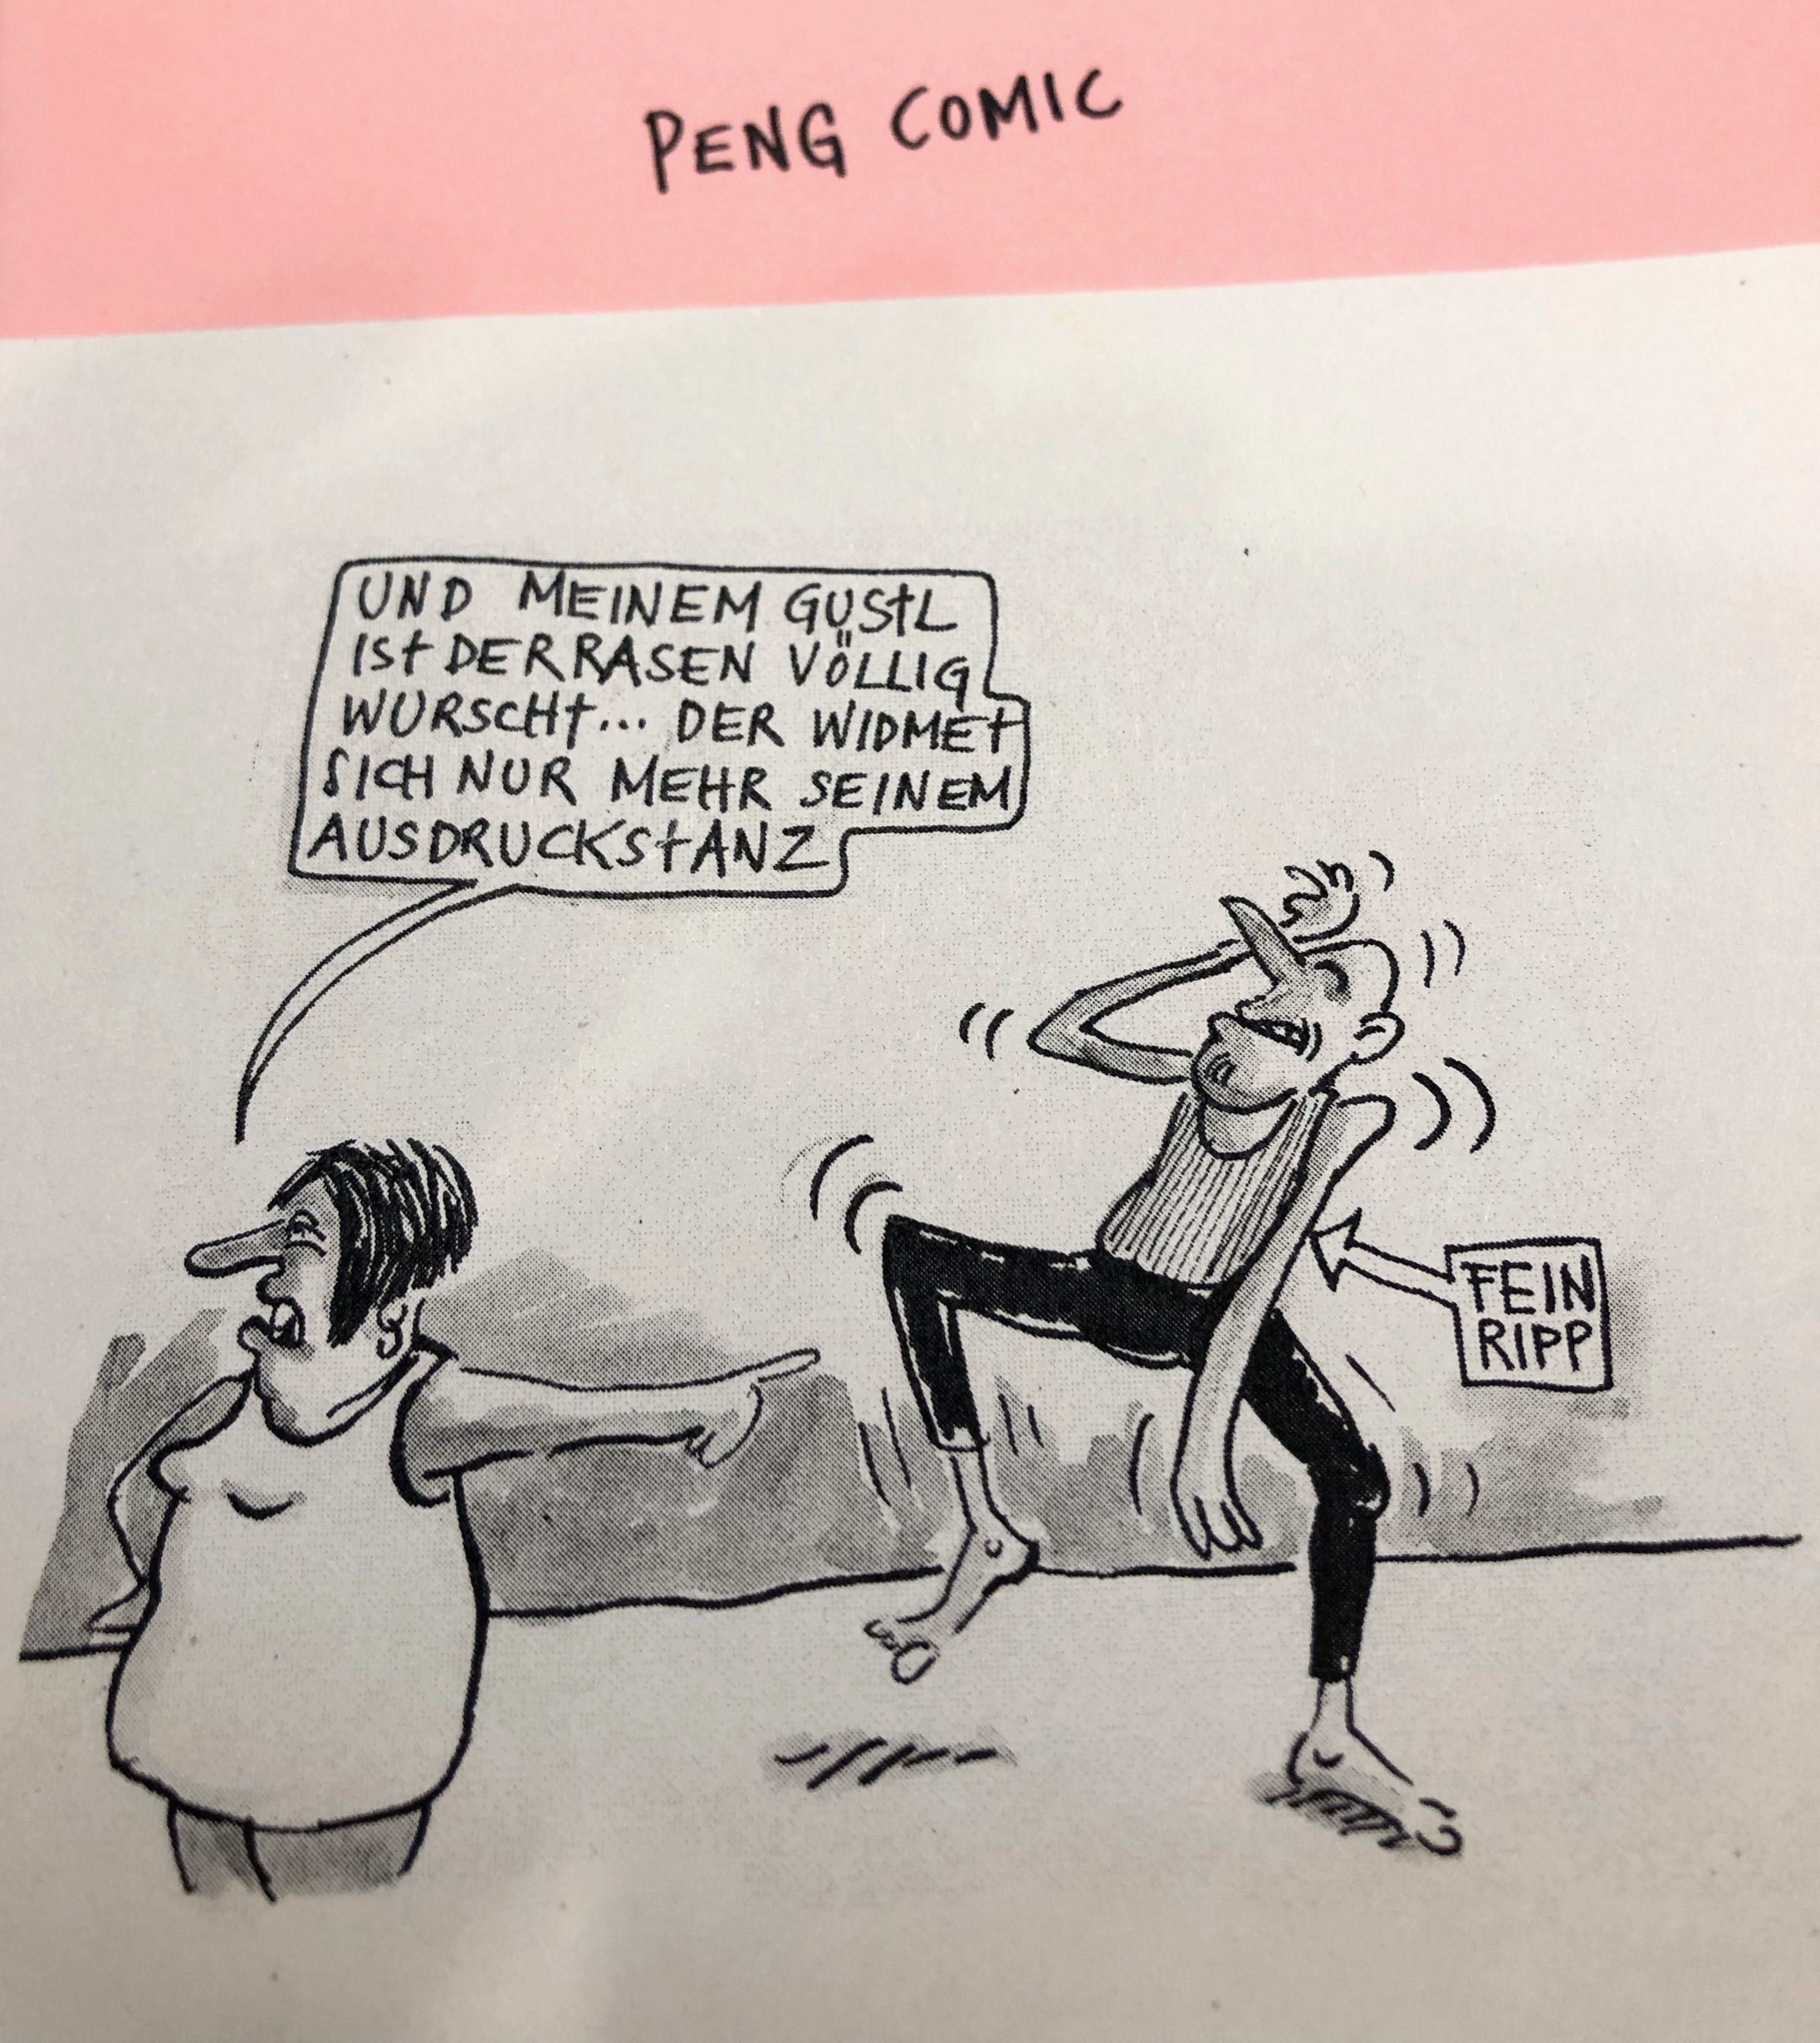 PENG COMIC
UND MEINEM GUStL
ISt DER RASEN VÖLLIG
WURSCHt... DER WIDMEt
SICH NUR MEHR SEINEM
AUSDRUCKStANZ
FEIN
RIPP